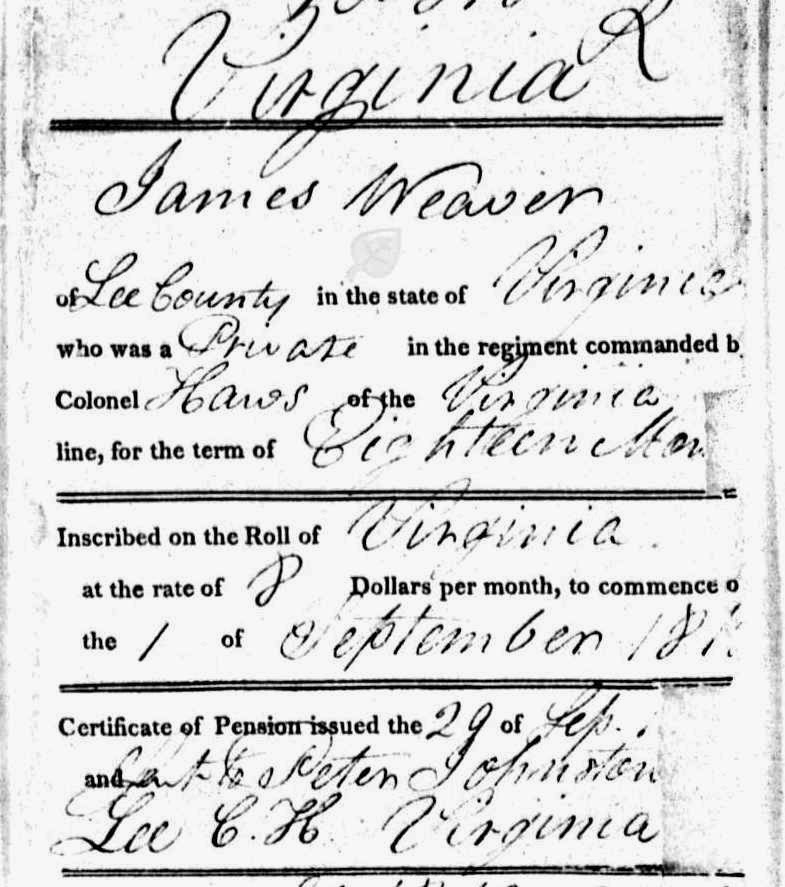 Virginia
James Weaver
of Lee County in the state of Virginia
who was a Private in the regiment commanded b
Colonel Haws of the Virginia
line, for the term of Eighteen Mon
Inscribed on the Roll of Virginia
at the rate of 8 Dollars per month, to commence o
the 1 of September 181
Certificate of Pension issued the 29 of Sep.
and Sent to Peter Johnston
Lee C. H. Virginia